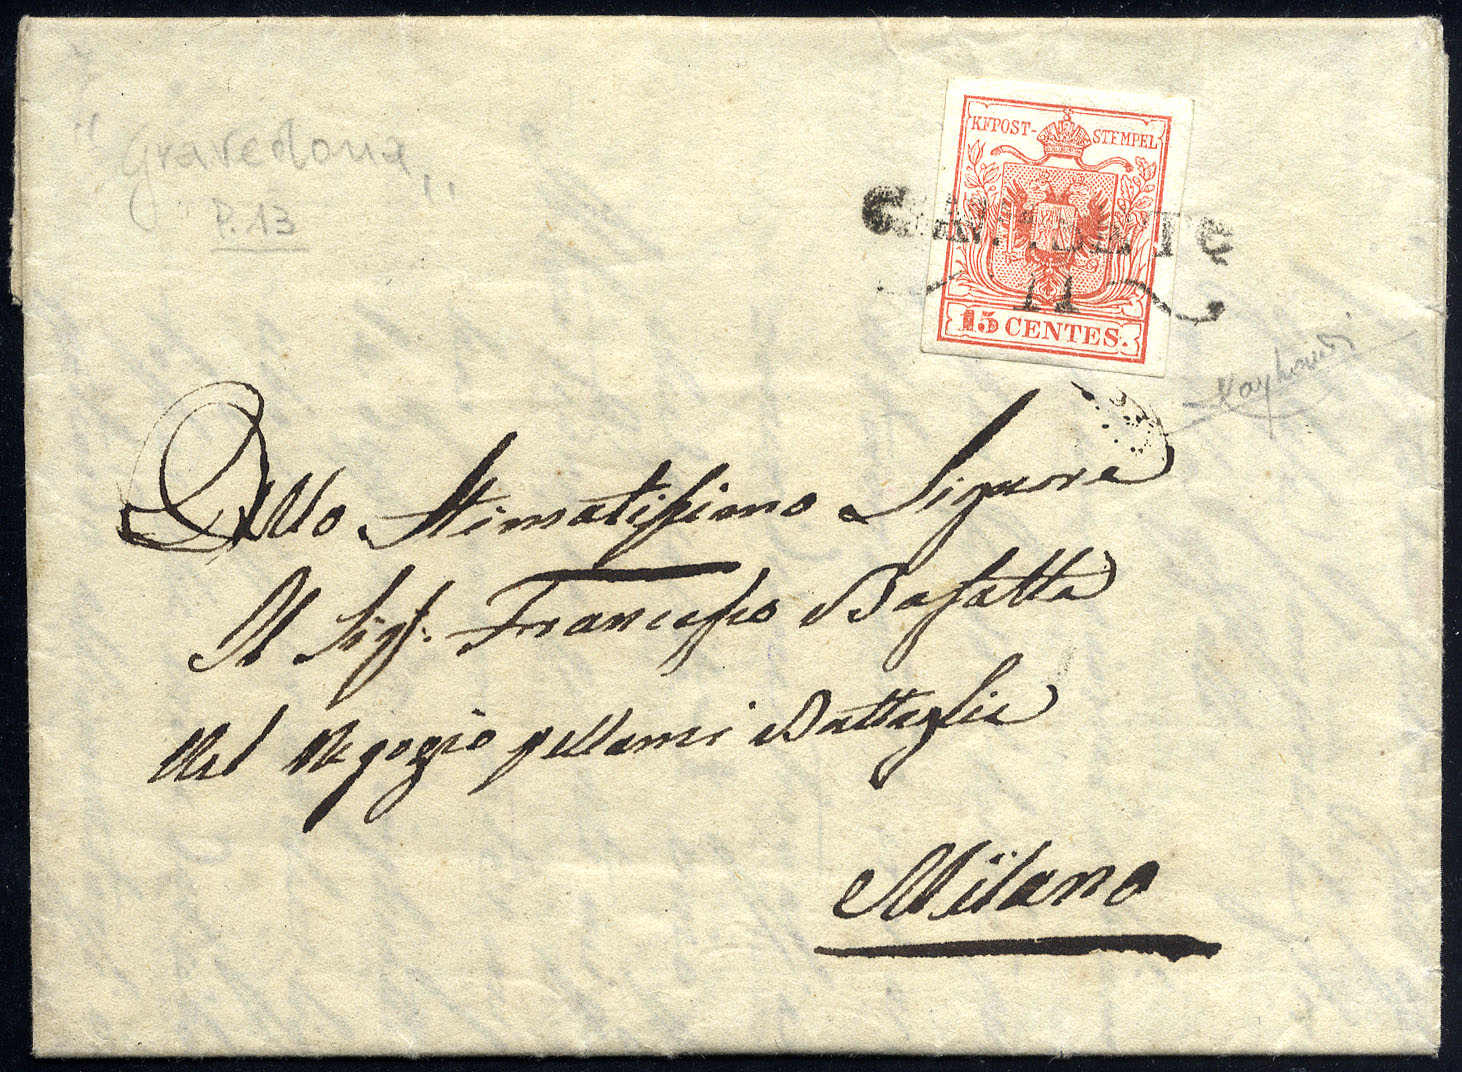 "Gravedona"
P. 13
KK POST-STEMPEL
11
15 CENTES.
Allo Stimatissimo Signore
Il Sigr. Francesco
Nel Negozio pellami Battaglia
Milano